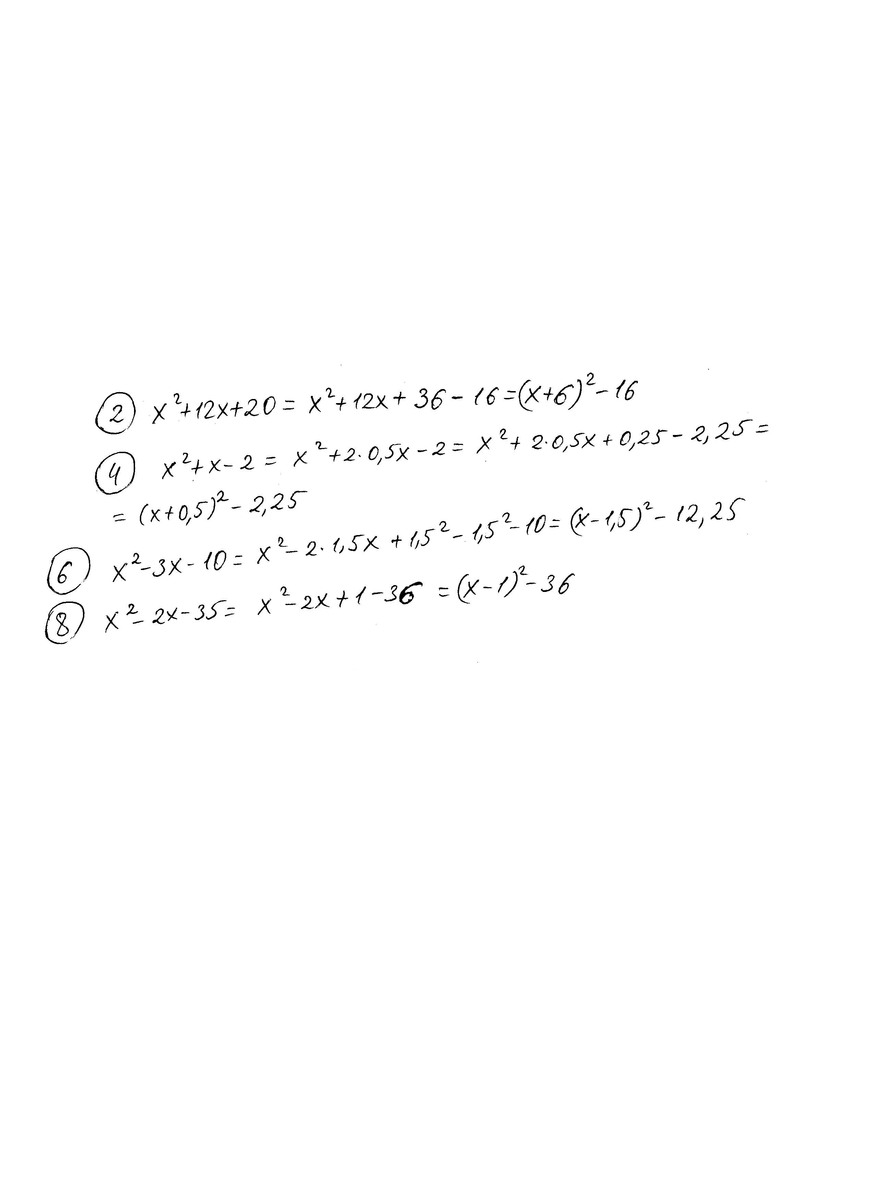 ② x²+12x+20 = x²+12x+36-16=(x+6)²-16
④ x²+x-2 = x²+2·0,5x-2 = x²+2·0,5x+0,25-2,25=
= (x+0,5)²-2,25
⑥ x²-3x-10 = x²-2·1,5x+1,5²-1,5²-10=(x-1,5)²-12,25
⑧ x²-2x-35= x²-2x+1-36 =(x-1)²-36